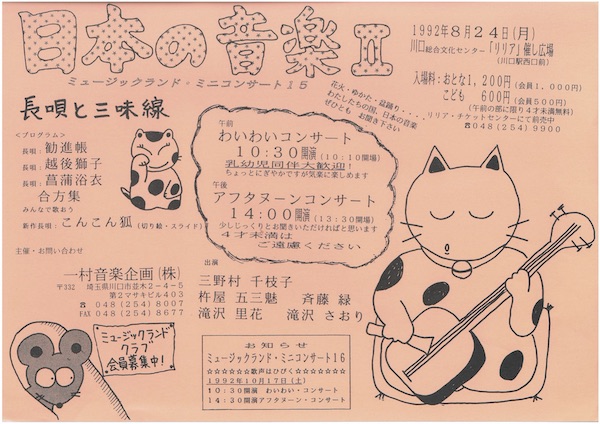 日本の音楽Ⅱ
ミュージックランド・ミニコンサート15
1992年8月24日(月)
川口総合文化センター「リリア」催し広場
(川口駅西口前)
入場料:おとな1,200円(会員1,000円)
こども 600円(会員500円)
(午前の部に限り4才未満無料)
リリア・チケットセンターにて前売中
☎048(254)9900
花火・ゆかた・盆踊り....
わたしたちの国、日本の音楽
ぜひとも お聞き下さい
長唄と三味線
<プログラム>
長唄:勧進帳
長唄:越後獅子
長唄:菖蒲浴衣
合方集
みんなで歌おう
新作長唄:こんこん狐(切り絵・スライド)
午前
わいわいコンサート
10:30開演(10:10開場)
乳幼児同伴大歓迎!
ちょっとにぎやかですが気楽に楽しめます
午後
アフタヌーンコンサート
14:00開演(13:30開場)
少しじっくりとお聞きいただければと思います
4才未満は
ご遠慮ください
主催・お問い合わせ
一村音楽企画(株)
〒332 埼玉県川口市並木2-4-5
第2マサキビル403
☎ 048(254)8007
FAX 048(254)8677
出演
三野村 千枝子
杵屋 五三魅 斉藤 緑
滝沢 里花 滝沢 さおり
ミュージックランド
クラブ
会員募集中!
お知らせ
ミュージックランド・ミニコンサート16
☆☆☆☆☆☆歌声はひびく☆☆☆☆☆☆☆
1992年10月17日(土)
10:30開演 わいわい・コンサート
14:30開演アフタヌーン・コンサート